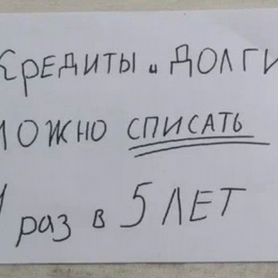 Кредиты и долги
можно списать
1 раз в 5 лет